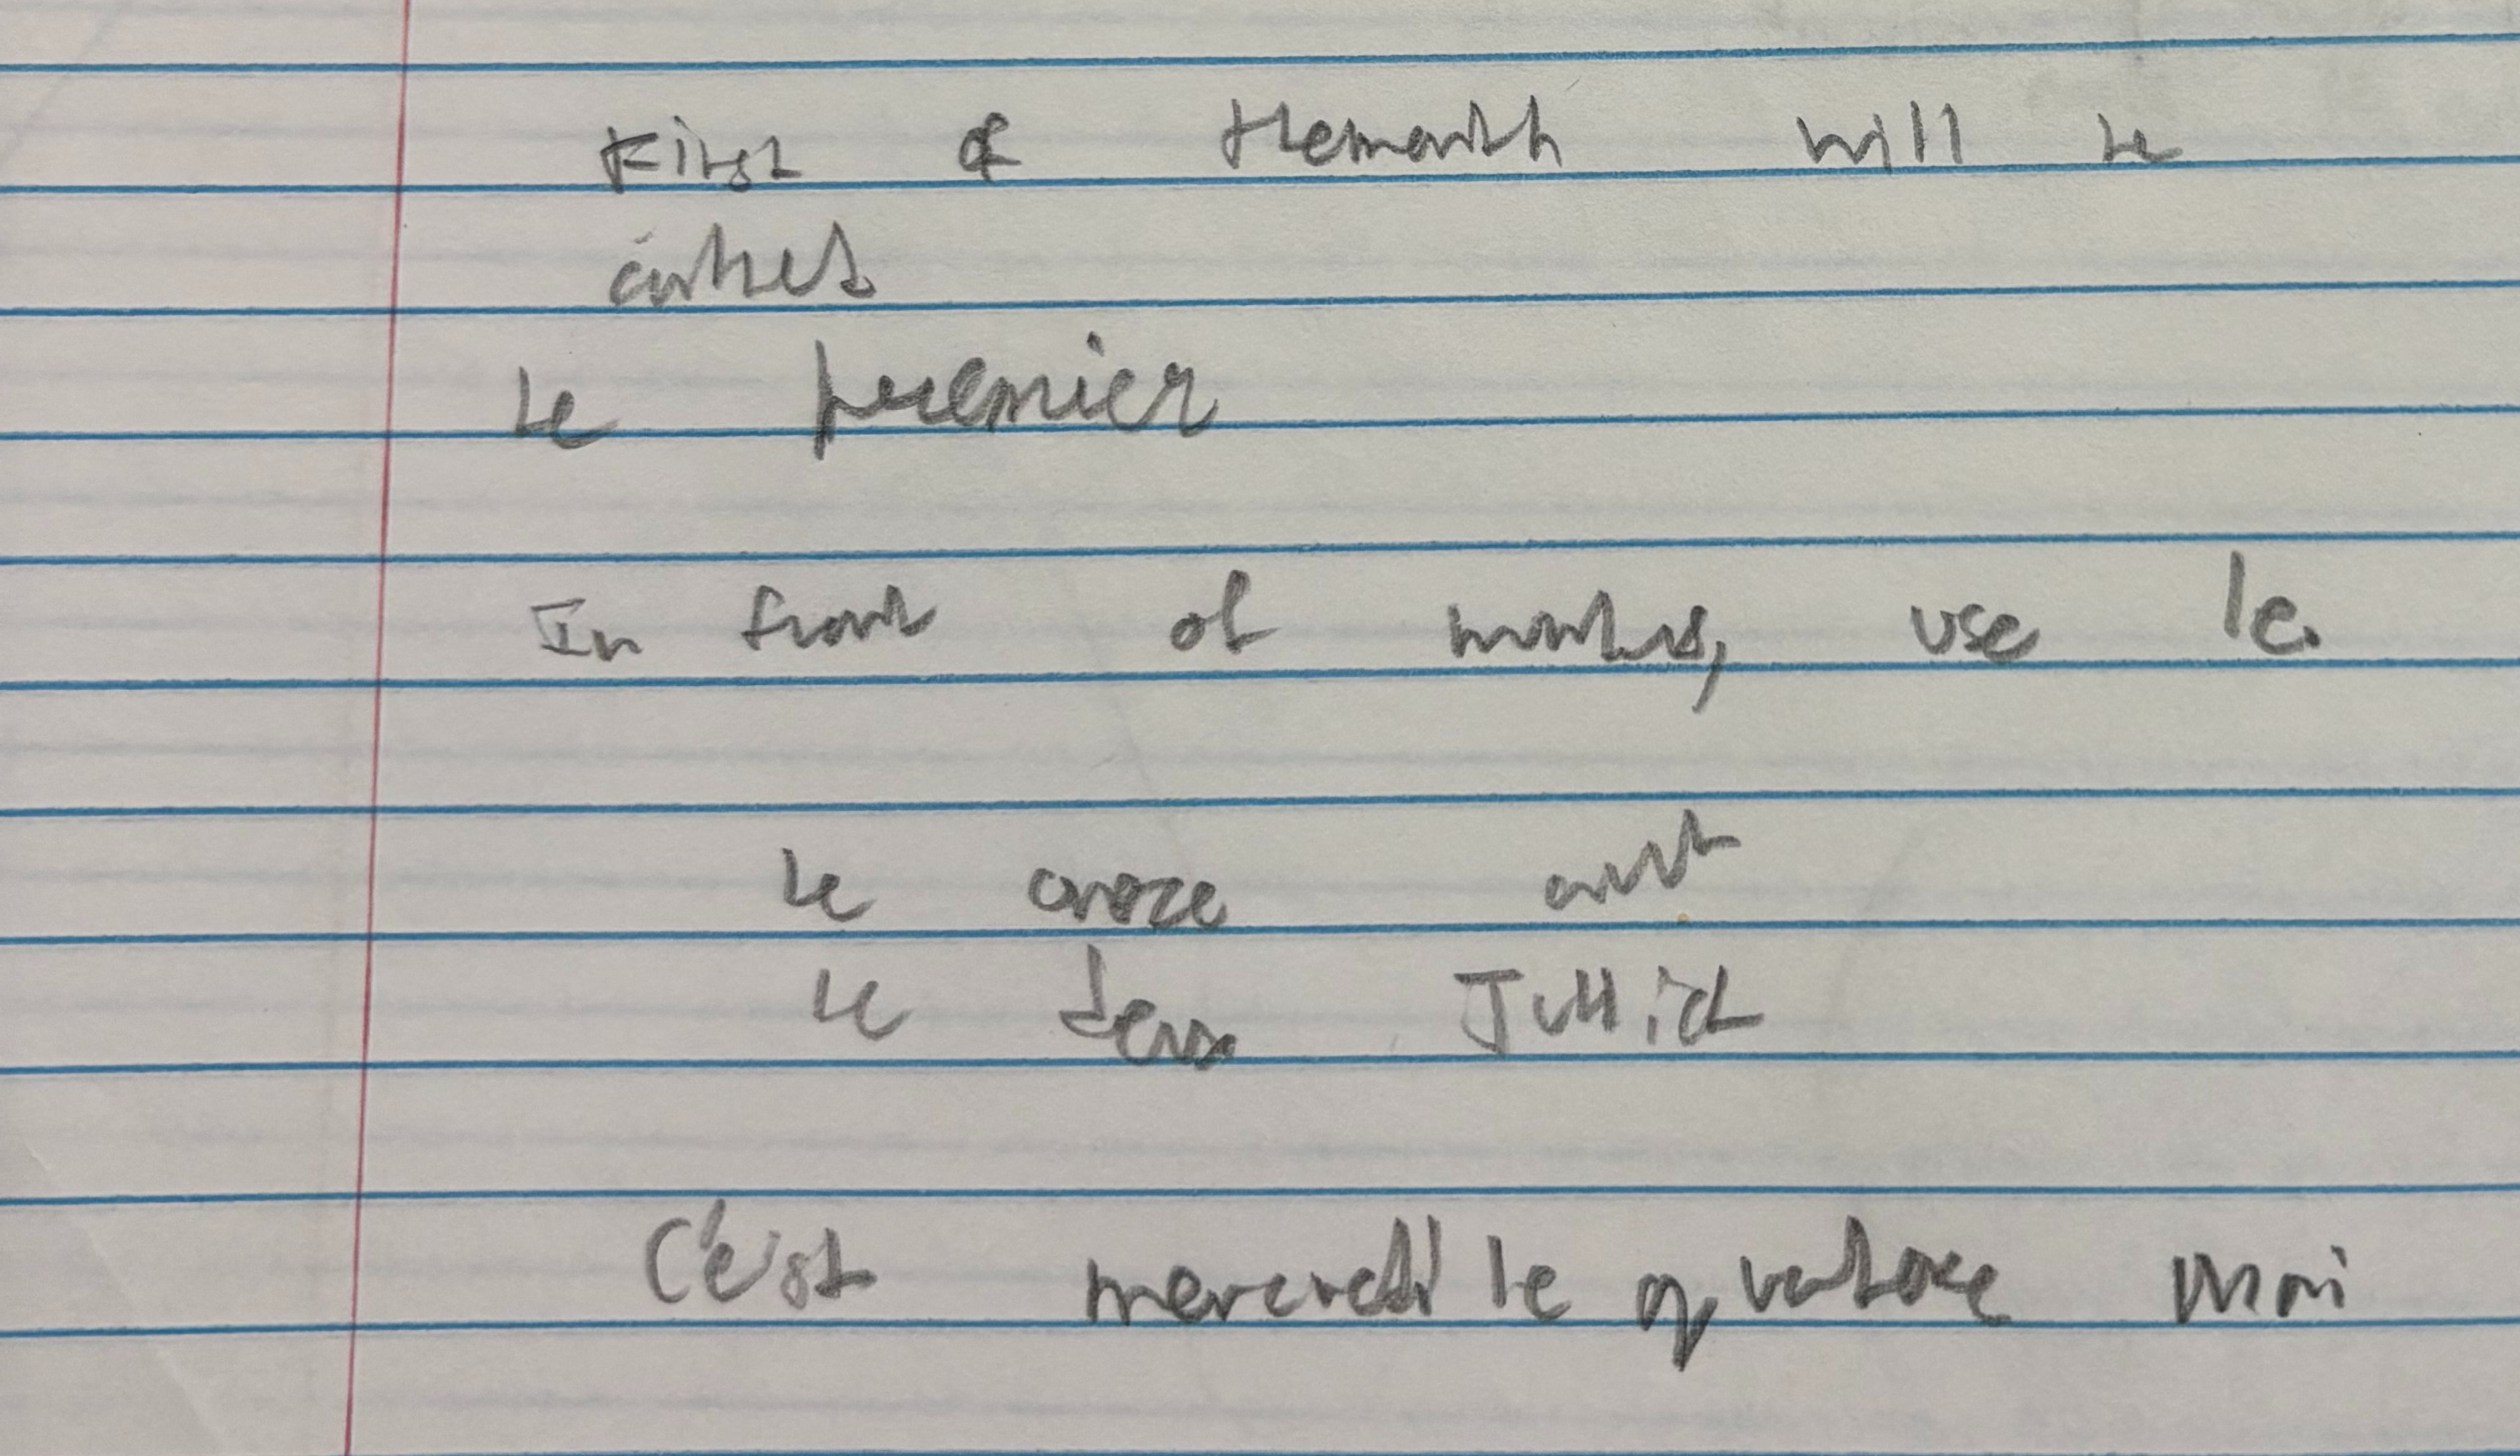 First of the month will be
le premier
In front of months, use le.
le onze août
le deux Juillet
C'est mercredi le quatorze mai